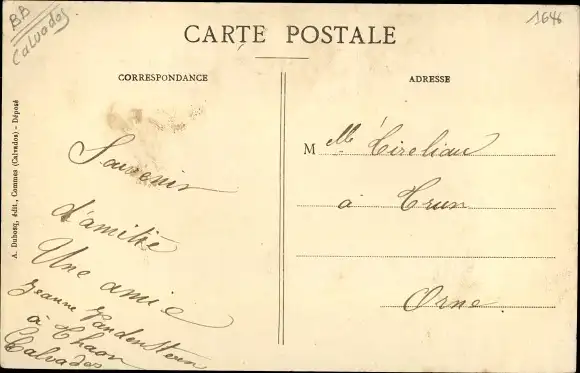 BB
Calvados
1646
CARTE POSTALE
CORRESPONDANCE
ADRESSE
A. Dubosq, édit., Commes (Calvados) - Déposé
Souvenir
d'amitié
Une amie
Jeanne Vandensteen
à Thaon
Calvados
Melle Tirelian
à Trun
Orne